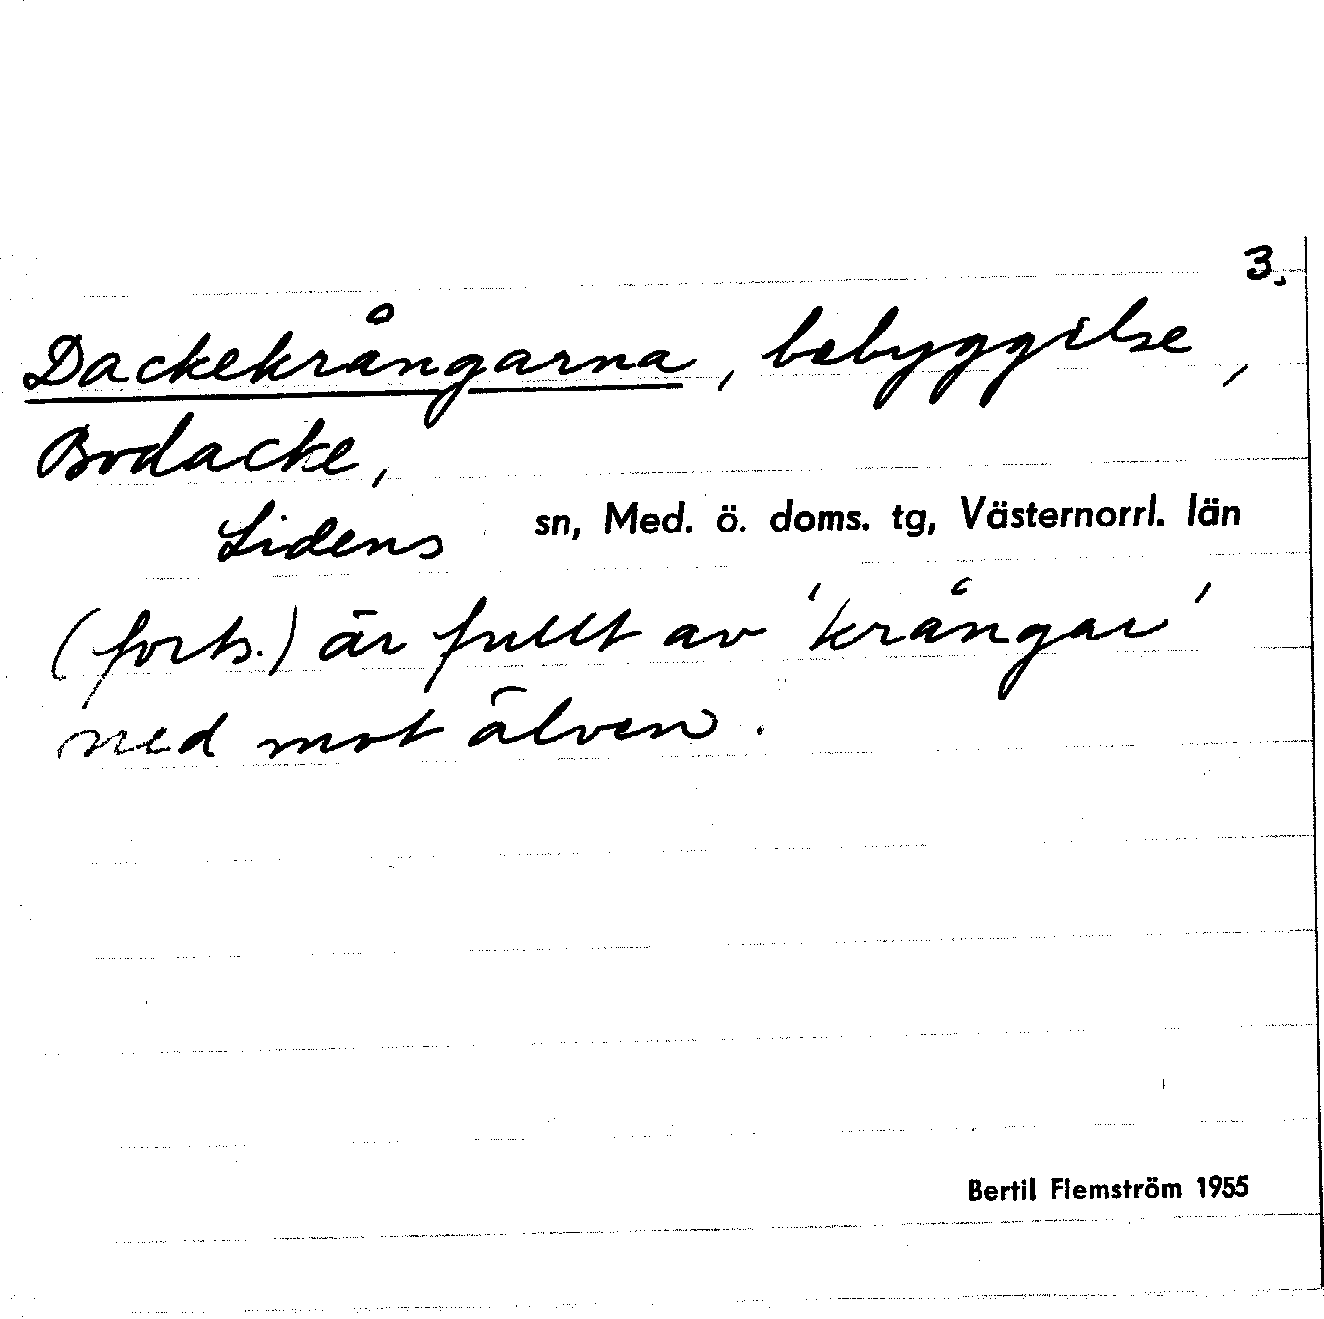 3.
Dackekrångarna, bebyggelse,
Bodacke,
Lidens sn, Med. ö. doms. tg, Västernorrl. län
(forts.) är fullt av 'krångar'
ned mot älven.
Bertil Flemström 1955